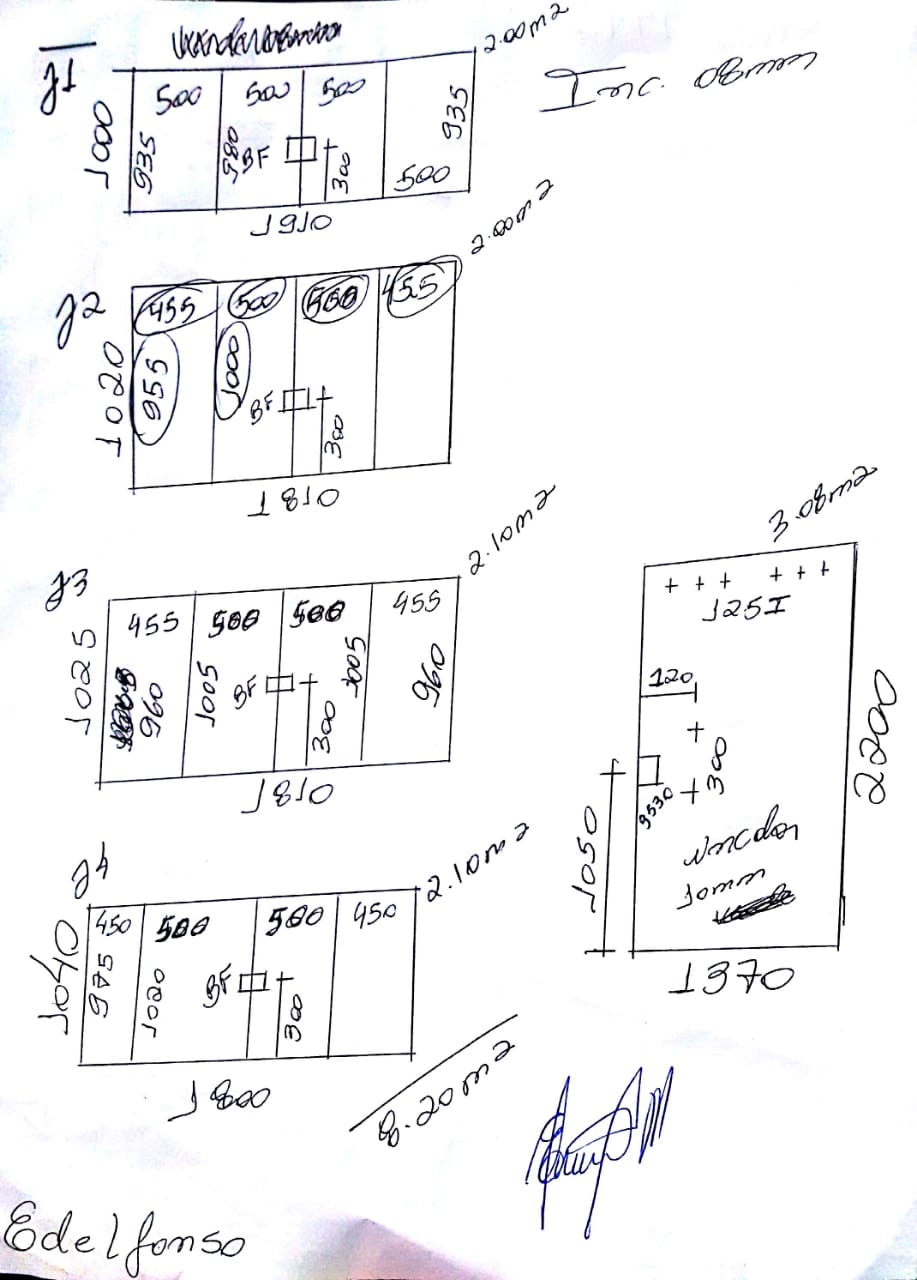 J1
2.00m2
Inc. 08mm
500 500 500
1000
935
980
BF
300
935
500
1910
2.00m2
J2
455 500 500 455
1020
955
1000
BF
300
1810
2.10m2
J3
455 500 500 455
1025
960
1005
BF
300
1005
960
1810
2.10m2
J4
450 500 500 450
1040
975
1020
BF
300
1800
8.20m2
3.08m2
+ + + + + +
125I
120
2200
300
9530
1050
Incolor
10mm
1370
Edelfonso